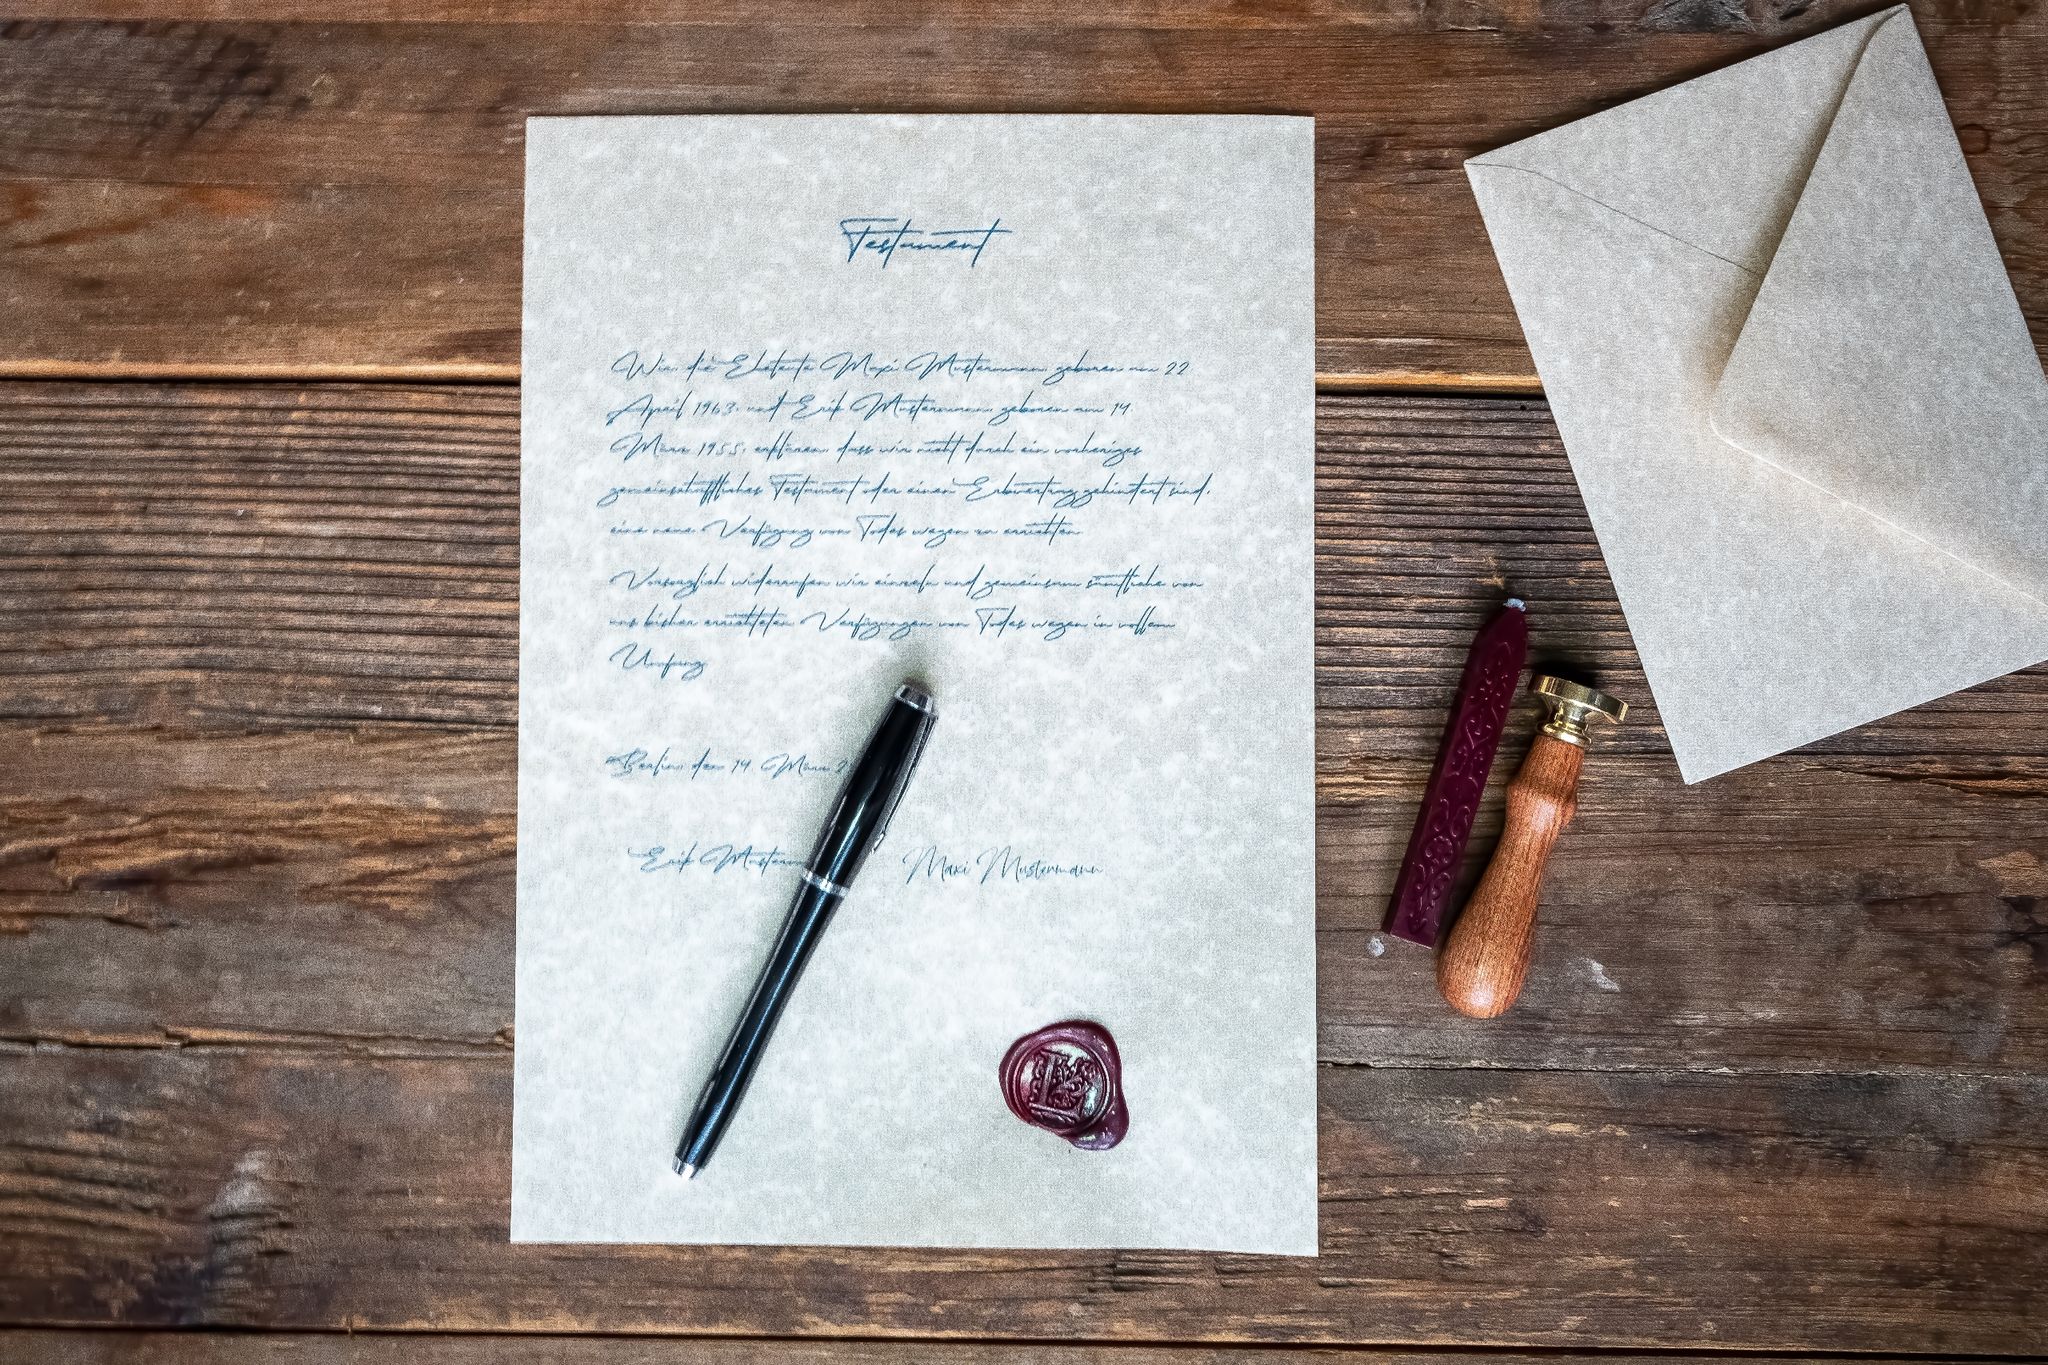 Testament
Wir, die Eheleute Maxi Mustermann, geboren am 22
April 1963, und Erik Mustermann, geboren am 14.
März 1955, erklären, dass wir nicht durch ein vorheriges
gemeinschaftliches Testament oder einen Erbvertrag gehindert sind,
eine neue Verfügung von Todes wegen zu errichten.
Vorsorglich widerrufen wir einzeln und gemeinsam sämtliche von
uns bisher errichteten Verfügungen von Todes wegen in vollem
Umfang
Berlin, den 14. März 2
Erik Musterm
Maxi Mustermann